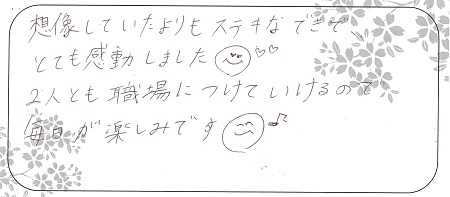 想像していたよりもステキなできで
とても感動しました
2人とも職場につけていけるので
毎日が楽しみです♪